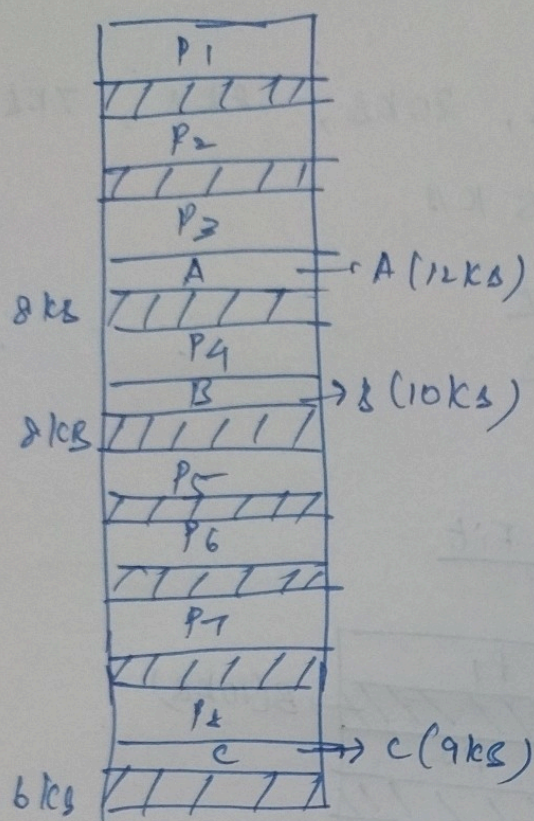 P1
P2
P3
A → A (12KB)
8KB
P4
B → B (10KB)
8KB
P5
P6
P7
P8
C → C (9KB)
6KB